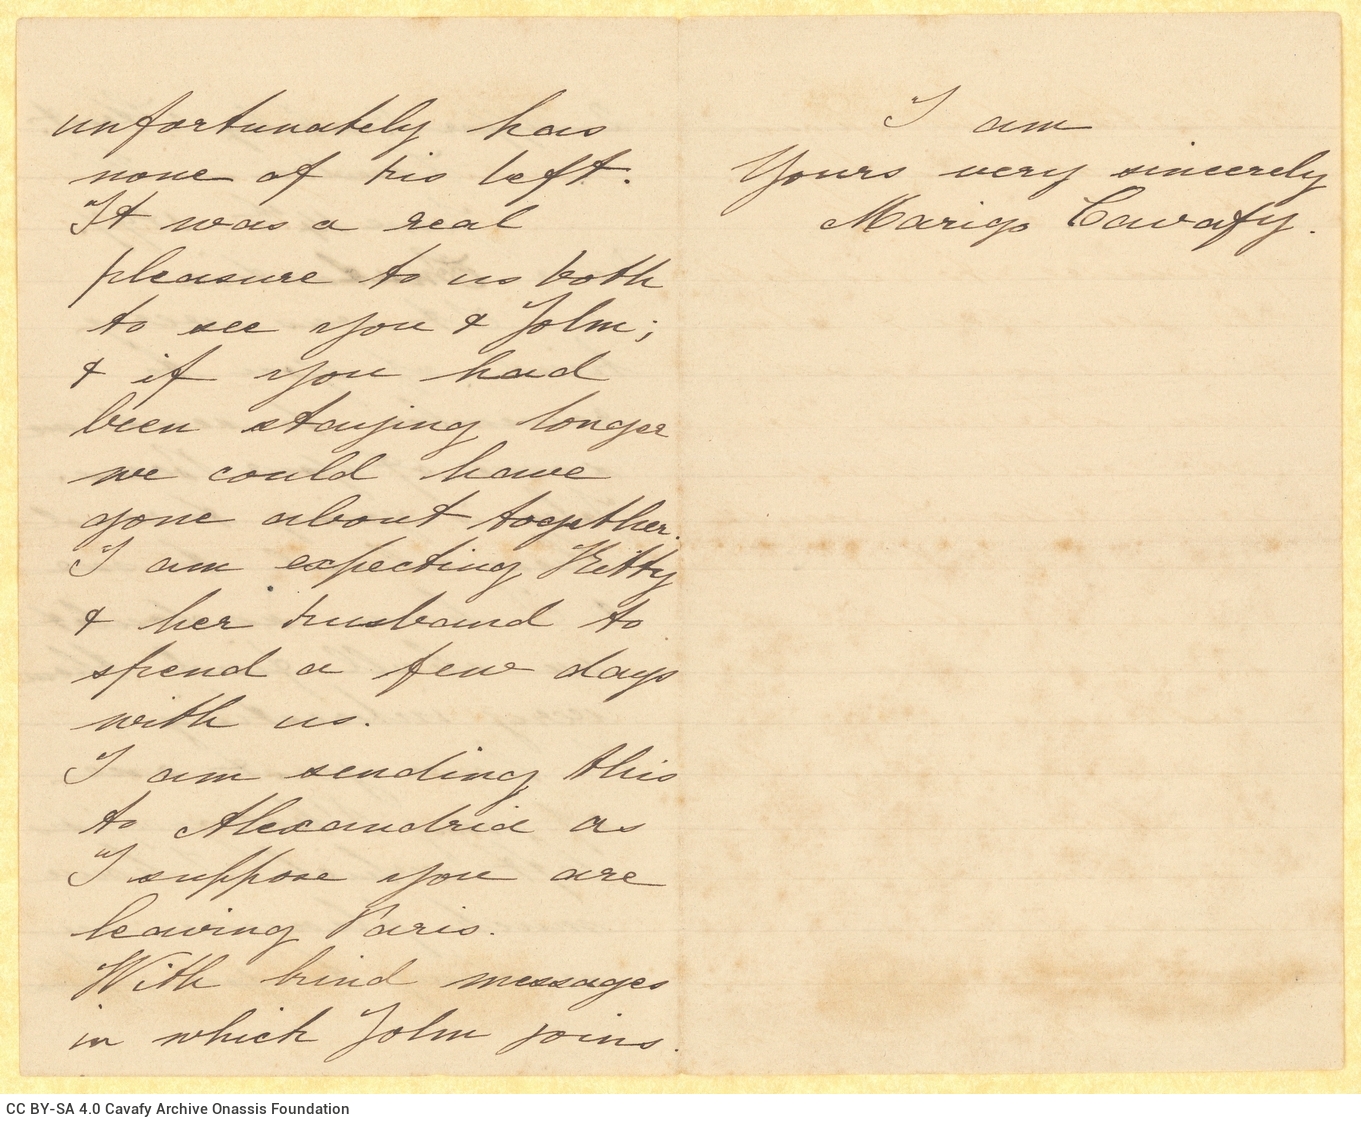 unfortunately has
none of his left.
It was a real
pleasure to us both
to see you & John;
& if you had
been staying longer
we could have
gone about together.
I am expecting Kitty
& her husband to
spend a few days
with us.
I am sending this
to Alexandria as
I suppose you are
leaving Paris.
With kind messages
in which John joins.
I am
Yours very sincerely
Marigo Cavafy.
CC BY-SA 4.0 Cavafy Archive Onassis Foundation